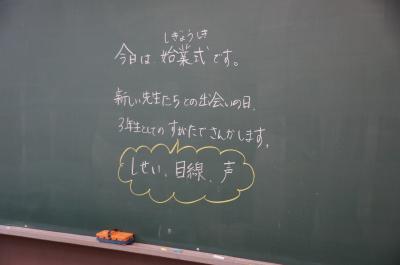 しぎょうしき
今日は 始業式 です。
新しい先生たちとの出会いの日、
3年生としての すがたで さんかします。
しせい、目線、声